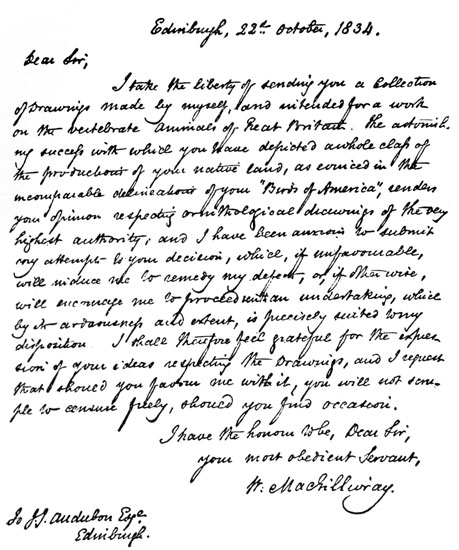 Edinburgh, 22d October, 1834.
Dear Sir,
I take the liberty of sending you a Collection
of Drawings made by myself, and intended for a work
on the vertebrate animals of Great Britain. The astonish-
ing success with which you have depicted a whole class of
the productions of your native land, as evinced in the
incomparable delineations of your "Birds of America", renders
your opinion respecting ornithological drawings of the very
highest authority; and I have been anxious to submit
my attempts to your decision, which, if unfavourable,
will induce me to remedy my defects, or, if otherwise,
will encourage me to proceed with an undertaking, which
by its arduousness and extent, is precisely suited to my
disposition. I shall therefore feel grateful for the expres-
sion of your ideas respecting the Drawings, and I request
that should you favour me with it, you will not scru-
ple to censure freely, should you find occasion.
I have the honour to be, Dear Sir,
your most obedient Servant,
W. MacGillivray.
To J. J. Audubon Esqe.
Edinburgh.